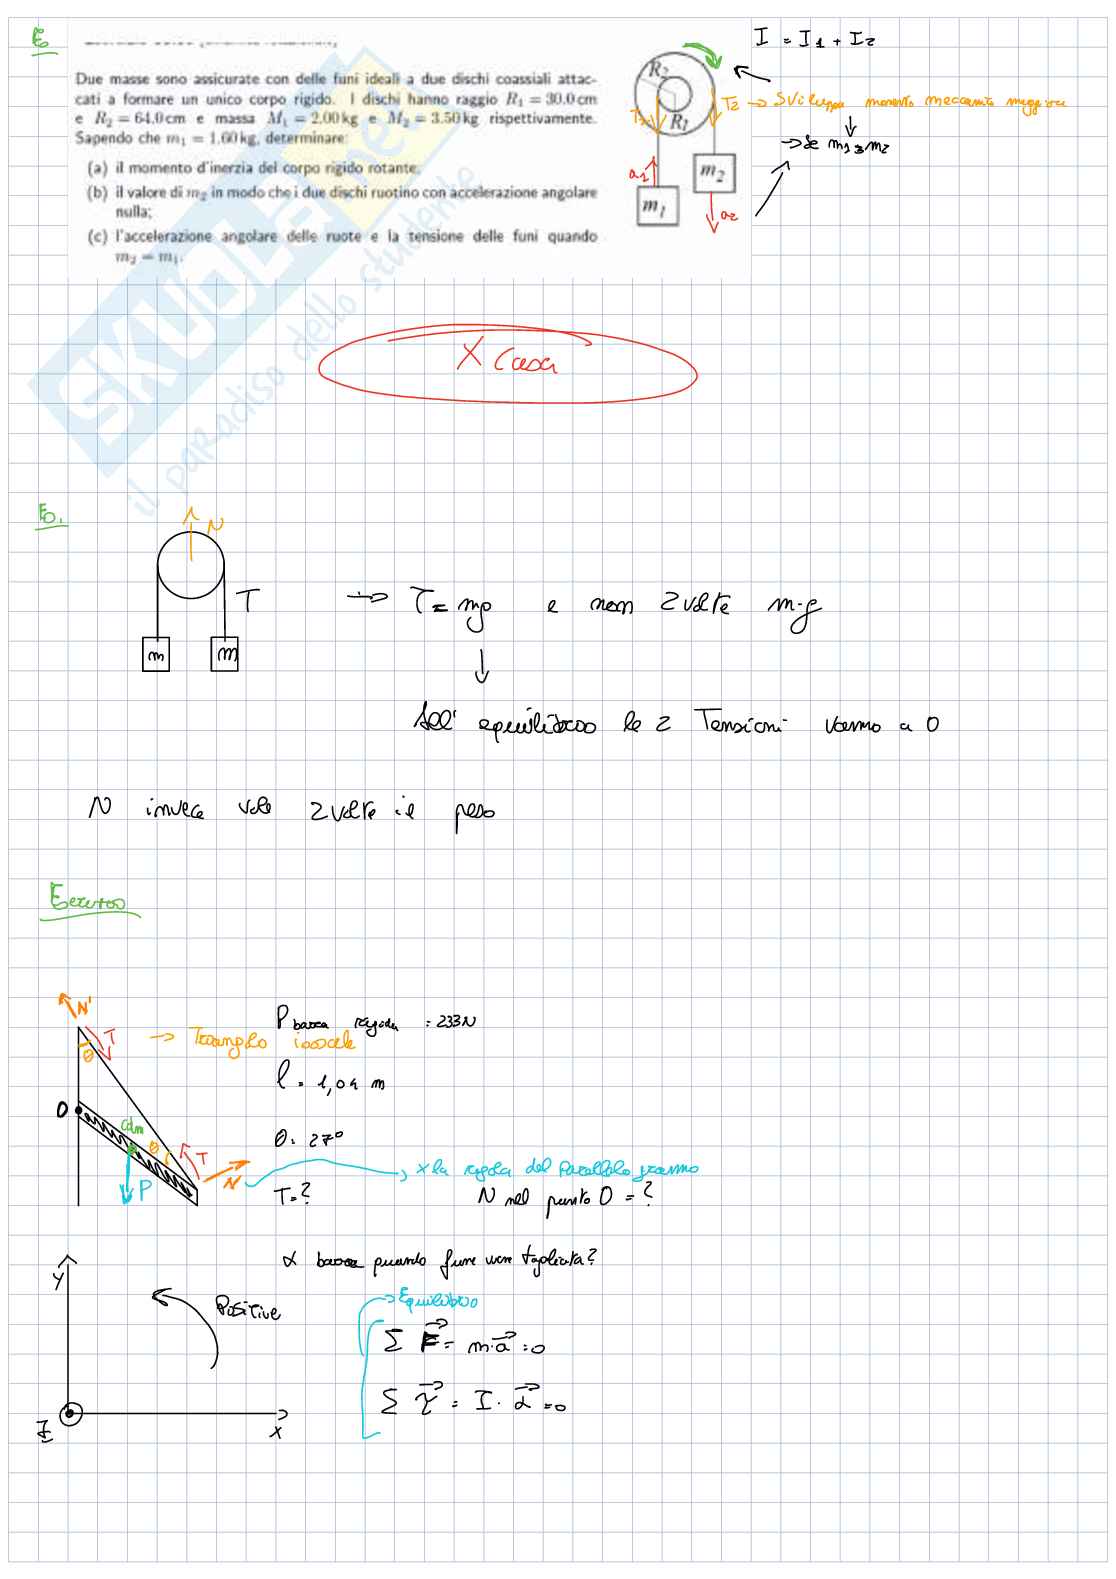 Es.
I = I1 + I2
Due masse sono assicurate con delle funi ideali a due dischi coassiali attac-
cati a formare un unico corpo rigido. I dischi hanno raggio R1 = 30.0 cm
e R2 = 64.0 cm e massa M1 = 2.00 kg e M2 = 3.50 kg rispettivamente.
Sapendo che m1 = 1.60 kg, determinare:
(a) il momento d'inerzia del corpo rigido rotante;
(b) il valore di m2 in modo che i due dischi ruotino con accelerazione angolare
nulla;
(c) l'accelerazione angolare delle ruote e la tensione delle funi quando
m2 = m1.
R2
R1
T1
T2 → Sviluppa momento meccanico maggiore
→ se m1 = m2
a1
m2
m1
a2
SKUOLA.net
il paradiso dello studente
X Casa
Es.
N
T → T = mg e non 2 volte m·g
m m
All' equilibrio le 2 Tensioni vanno a 0
N invece vale 2 volte il peso
Esercizio
N'
T
θ
→ Triangolo isoscele
P barra rigida = 233N
l = 1,04 m
O
cdm
θ
T
θ = 27°
P
N
→ x la regola del parallelogramma
T = ?
N nel punto O = ?
α barra quando fune viene tagliata?
y
Positive
→ Equilibrio
Σ F = m·a = 0
Σ τ = I · α = 0
z
x